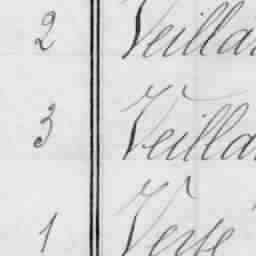 2 Veilla
3 Veilla
1 Verse